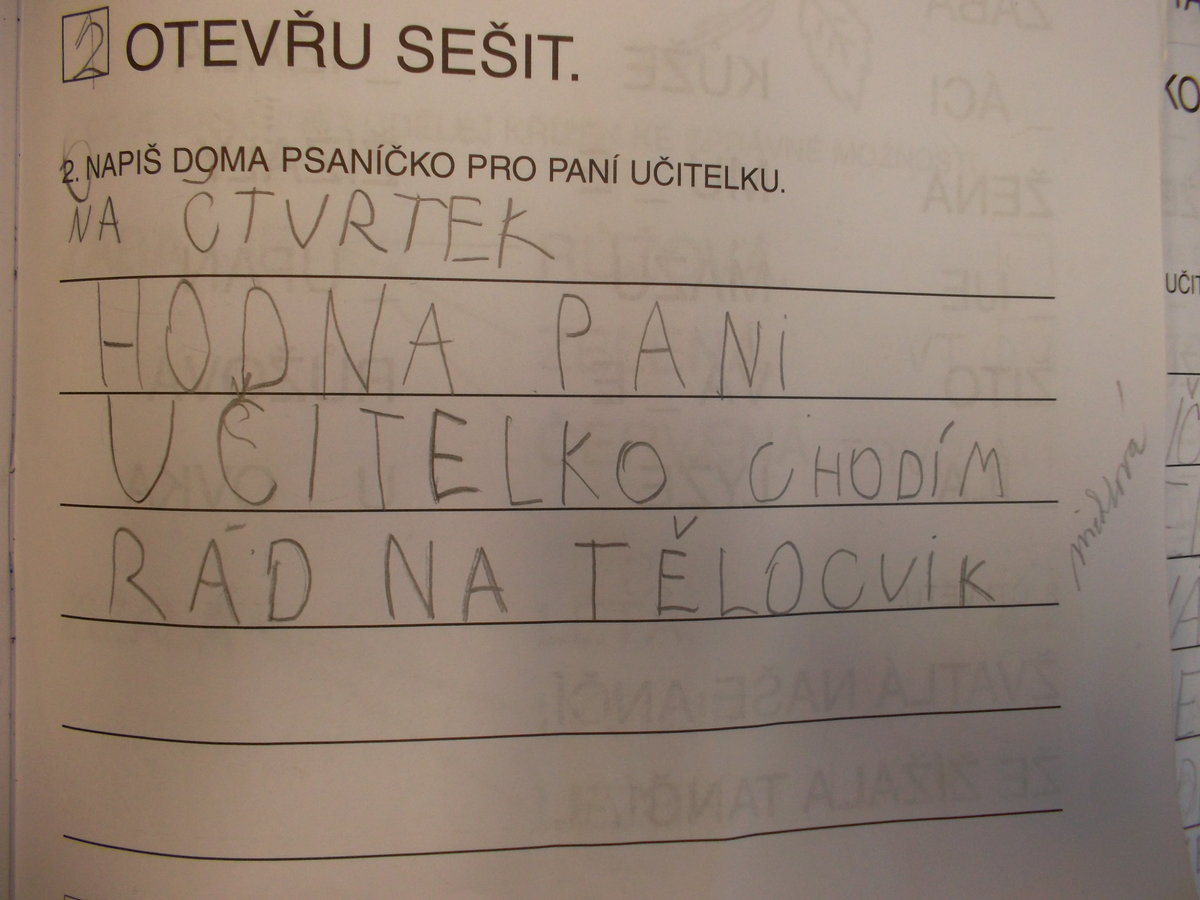 2 OTEVŘU SEŠIT.
2. NAPIŠ DOMA PSANÍČKO PRO PANÍ UČITELKU.
NA ČTVRTEK
HODNA PANi
UČITELKO CHODÍM
RÁD NA TĚLOCVIK
KO
UČIT